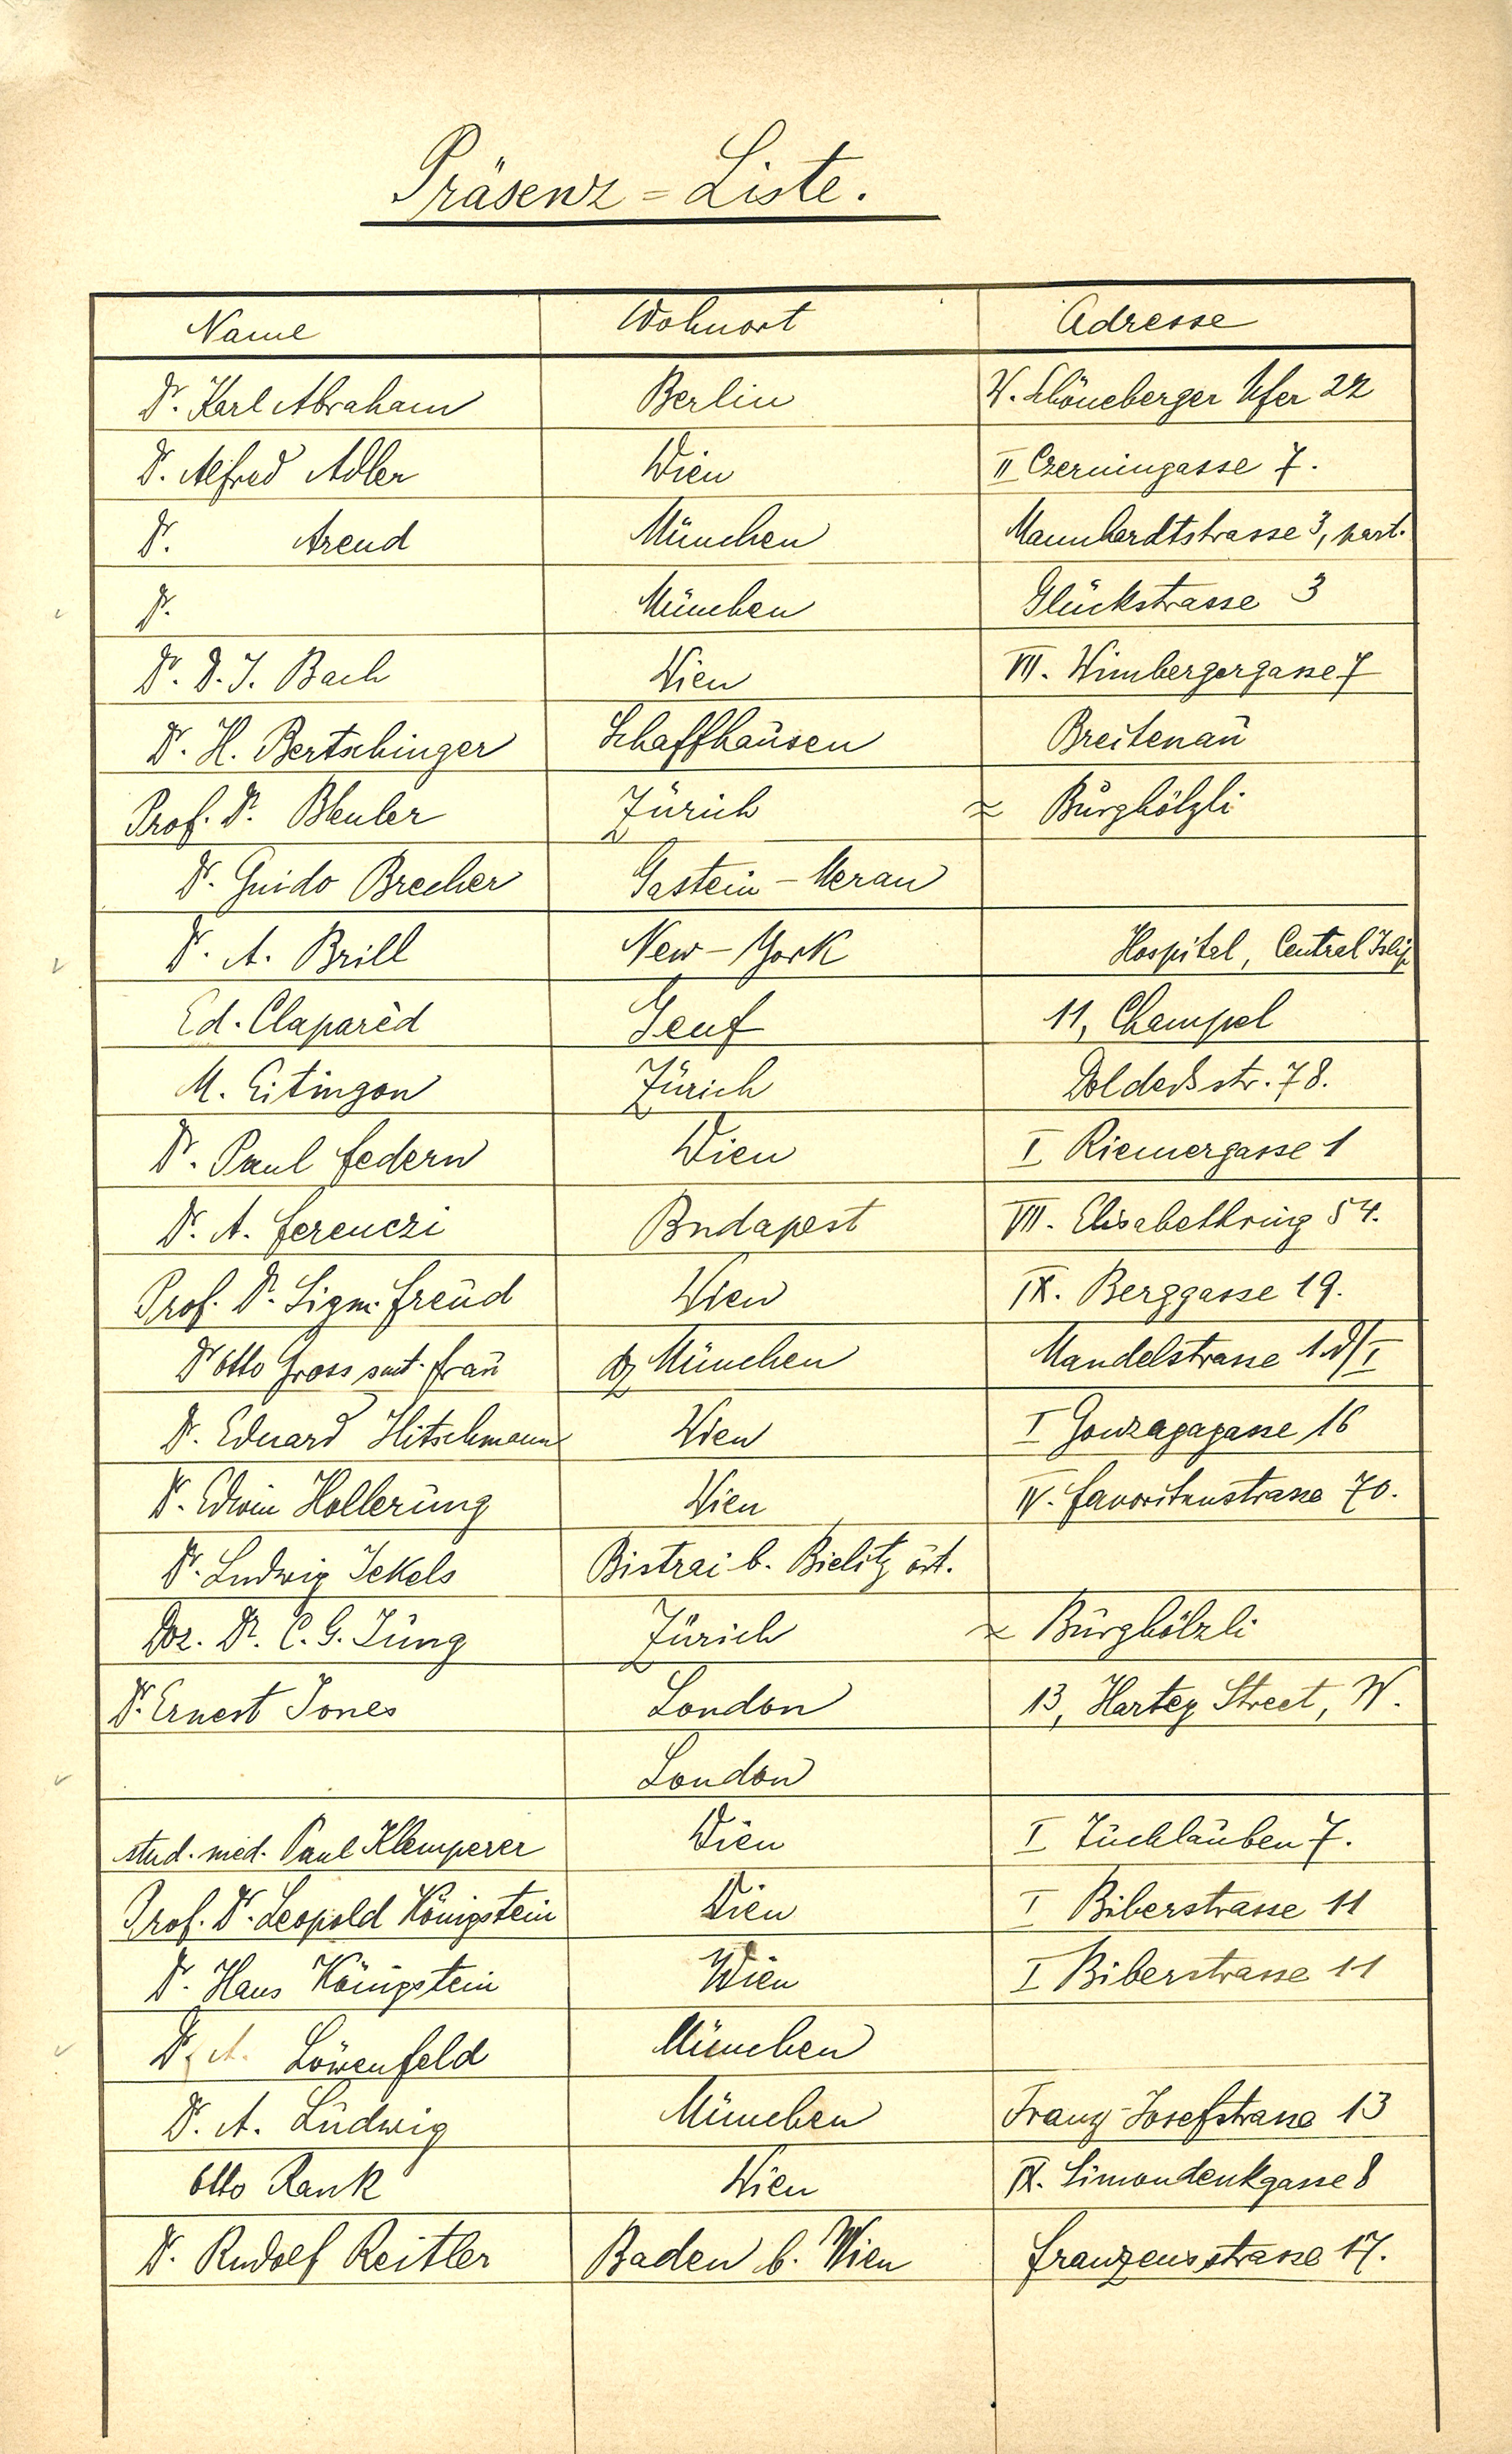 Präsenz=Liste.
Name Wohnort Adresse
Dr. Karl Abraham Berlin W. Schöneberger Ufer 22
Dr. Alfred Adler Wien II Czerningasse 7.
Dr. Arend München Mannhardtstrasse 3, part.
Dr. München Glückstrasse 3
Dr. D. J. Bach Wien VII. Wimbergergasse 7
Dr. H. Bertschinger Schaffhausen Breitenau
Prof. Dr. Bleuler Zürich Burghölzli
Dr. Guido Brecher Gastein-Meran
Dr. A. Brill New-York Hospital, Central Islip
Ed. Claparèd Genf 11, Champel
M. Eitingon Zürich str. 78.
Dr. Paul Federn Wien I Riemergasse 1
Dr. A. Ferenczi Budapest VII. Elisabethring 54.
Prof. Dr. Sigm. Freud Wien IX. Berggasse 19.
Dr Otto Gross samt Frau München Mandelstrasse 1d/I
Dr. Eduard Hitschmann Wien I Gonzagagasse 16
Dr. Edwin Hollerung Wien IV. Favoritenstrasse 70.
Dr. Ludwig Jekels Bistrai b. Bielitz öst.
Doz. Dr. C. G. Jung Zürich Burghölzli
Dr. Ernest Jones London 13, Harley Street, W.
London
stud. med. Paul Klemperer Wien I Tuchlauben 7.
Prof. Dr. Leopold Königstein Wien I Biberstrasse 11
Dr. Hans Königstein Wien I Biberstrasse 11
Dr. A. Löwenfeld München
Dr. A. Ludwig München Franz Josefstrasse 13
Otto Rank Wien IX. Simondenkgasse 8
Dr. Rudolf Reitler Baden b. Wien Franzensstrasse 17.